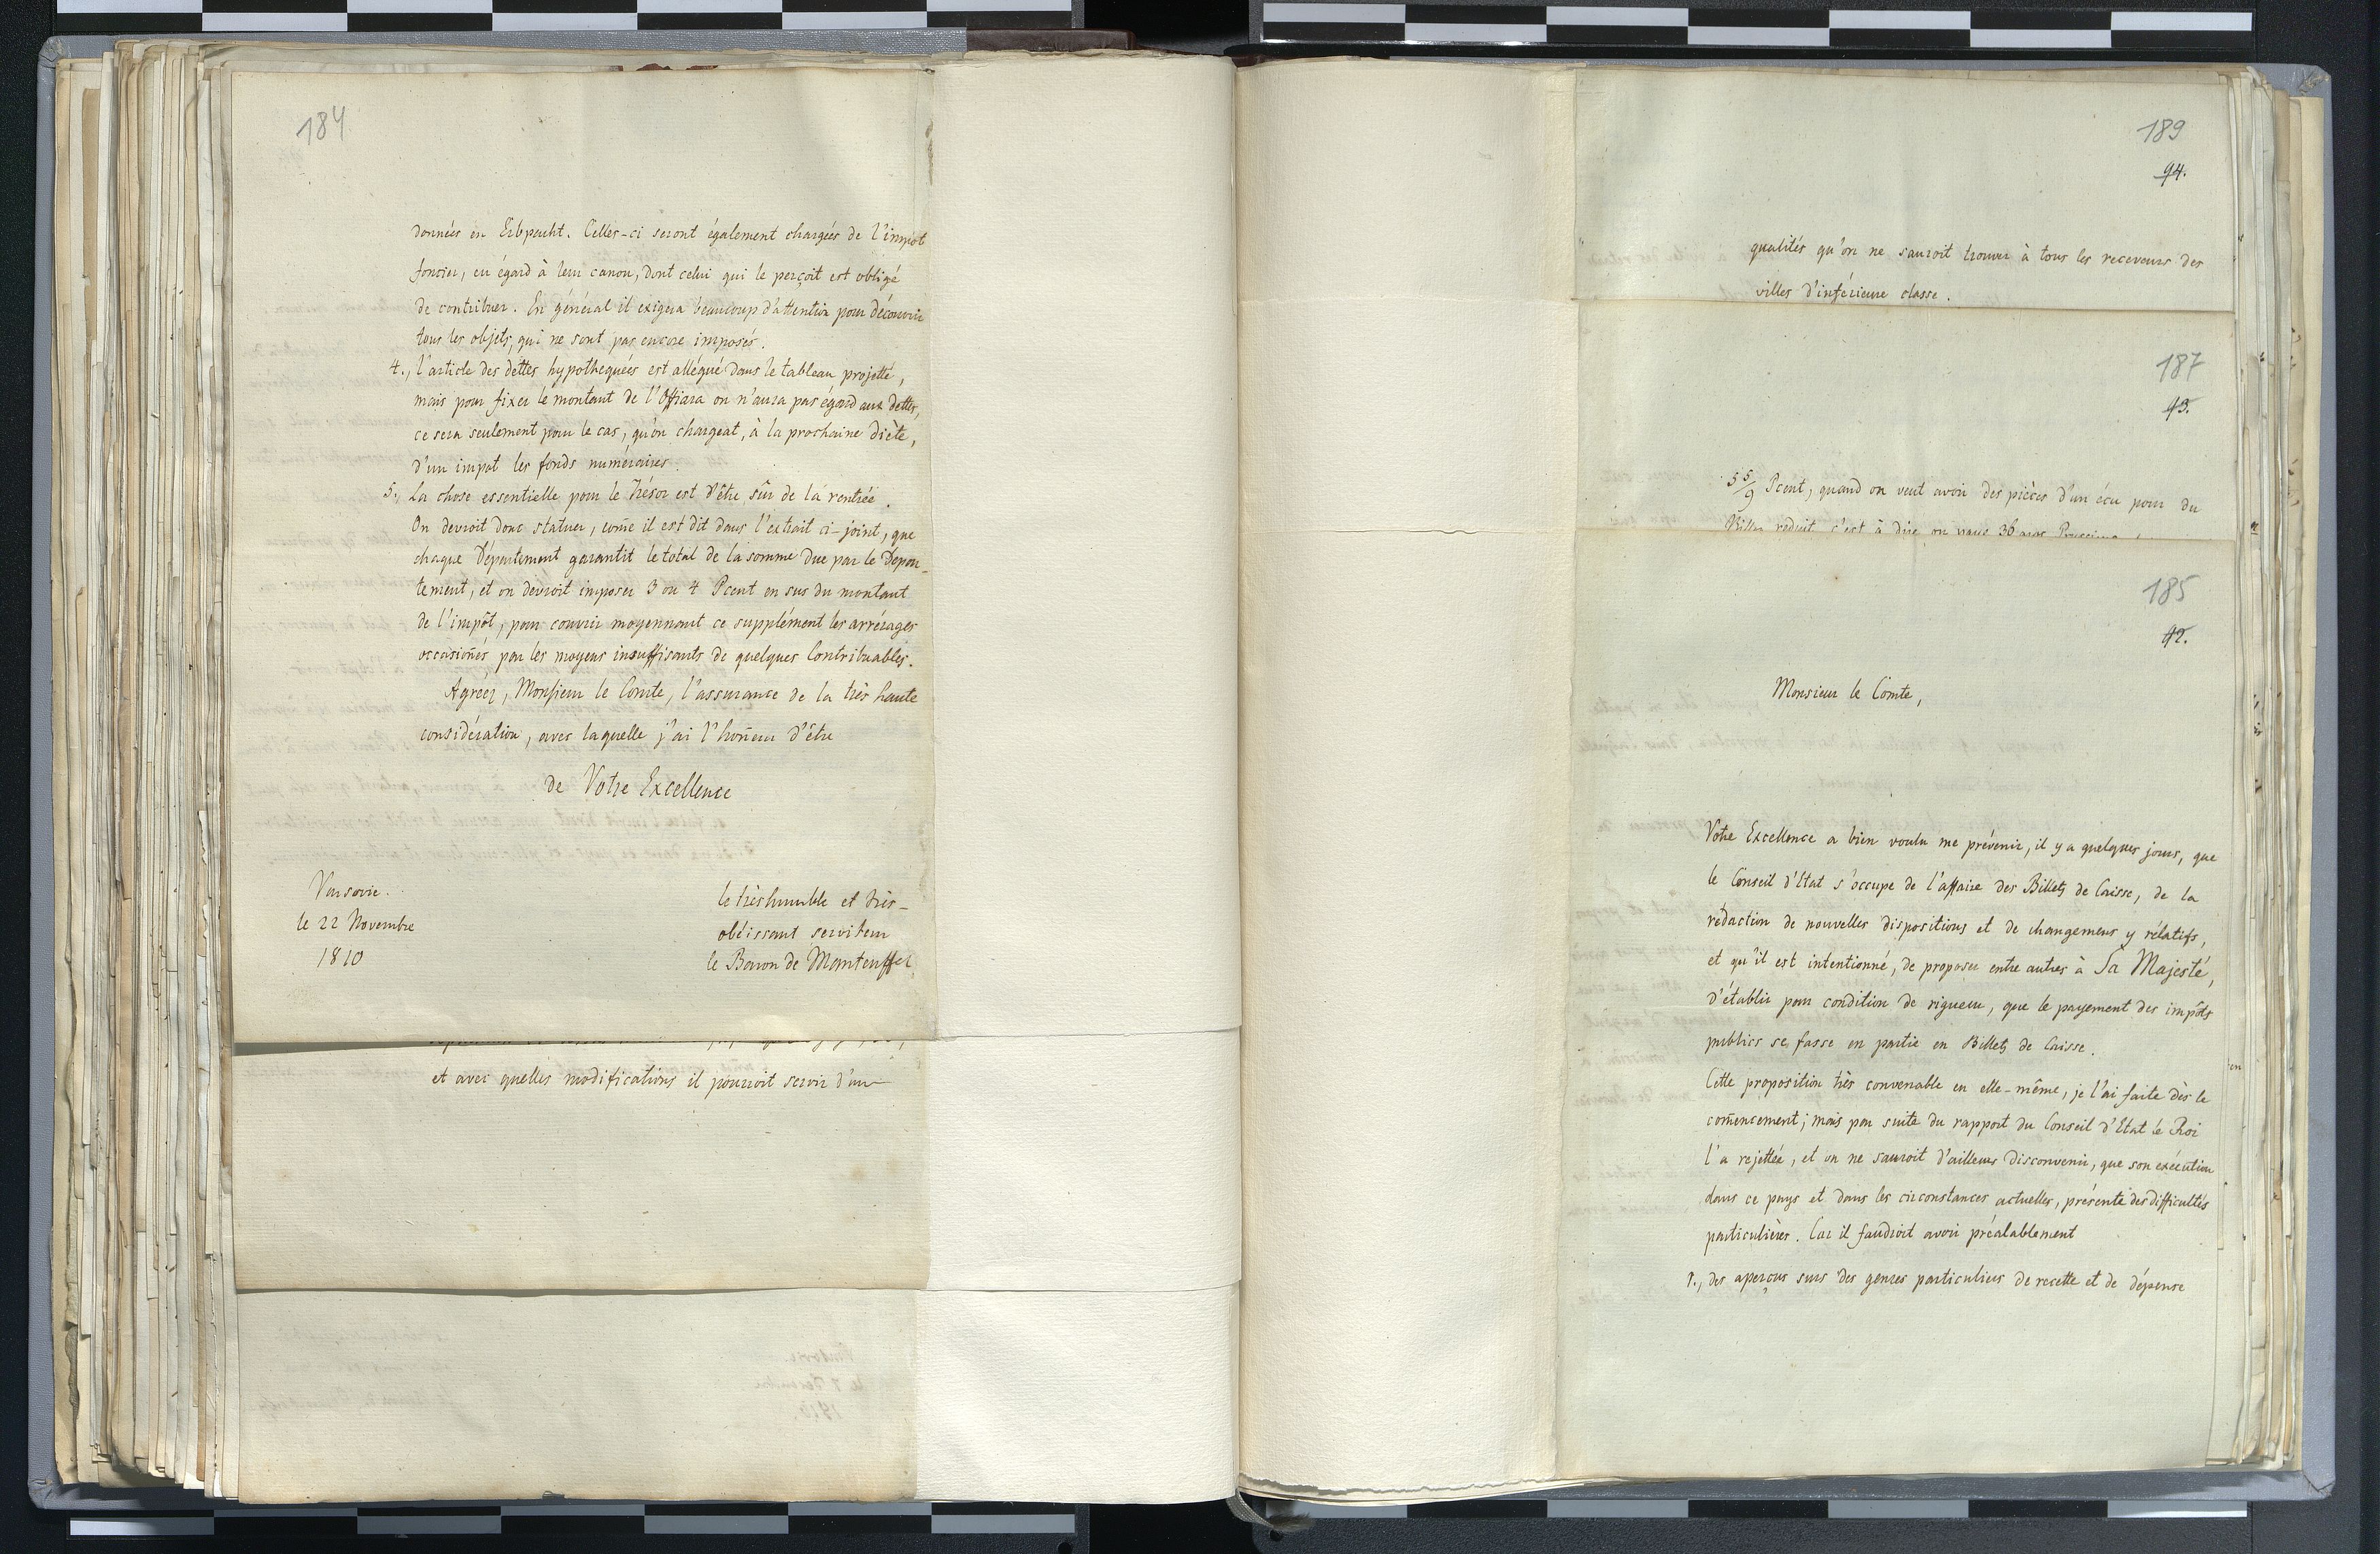 184
données en Erbpacht. Celles-ci seront également chargées de l'impot
foncier, eu égard à leur canon, dont celui qui le perçoit est obligé
de contribuer. En général il exigera beaucoup d'attention pour découvrir
tous les objets, qui ne sont pas encore imposés.
4., l'article des dettes hypothequées est allégué dans le tableau projetté,
mais pour fixer le montant de l'Offiara on n'aura pas égard aux dettes,
ce sera seulement pour le cas, qu'on chargeat, à la prochaine diète,
d'un impot les fonds numéraires.
5., La chose essentielle pour le Trésor est d'être sûr de la rentrée.
On devroit donc statuer, com̄e il est dit dans l'extrait ci-joint, que
chaque Département garantit le total de la somme due par le Depar-
tement, et on devroit imposer 3 ou 4 Pcent en sus du montant
de l'impôt, pour couvrir moyennant ce supplément les arrérages
occasionés par les moyens insuffisants de quelques Contribuables.
Agreez, Monsieur le Comte, l'assurance de la très haute
considération, avec laquelle j'ai l'hon̄eur d'être
de Votre Excellence
Varsovie.
le 22 Novembre
1810
le très humble et très-
obéissant serviteur
le Baron de Manteuffel
et avec quelles modifications il pourroit servir d'un
189
94.
qualités qu'on ne sauroit trouver à tous les receveurs des
villes d'inférieure classe.
187
93.
5 5/9 Pcent, quand on veut avoir des pièces d'un écu pour du
Billon reduit, c'est à dire on paye 36 gros
185
92.
Monsieur le Comte,
Votre Excellence a bien voulu me prévenir, il y a quelques jours, que
le Conseil d'Etat s'occupe de l'affaire des Billets de Caisse, de la
rédaction de nouvelles dispositions et de changemens y rélatifs,
et qu'il est intentionné, de proposer entre autres à Sa Majesté,
d'établir pour condition de rigueur, que le payement des impôts
publics se fasse en partie en Billets de Caisse.
Cette proposition très convenable en elle-même, je l'ai faite dès le
com̄encement; mais par suite du rapport du Conseil d'Etat le Roi
l'a rejettée, et on ne sauroit d'ailleurs disconvenir, que son exécution
dans ce pays et dans les circonstances actuelles, présente des difficultés
particulières. Car il faudroit avoir préalablement
1., des aperçus surs des genres particuliers de recette et de dépense